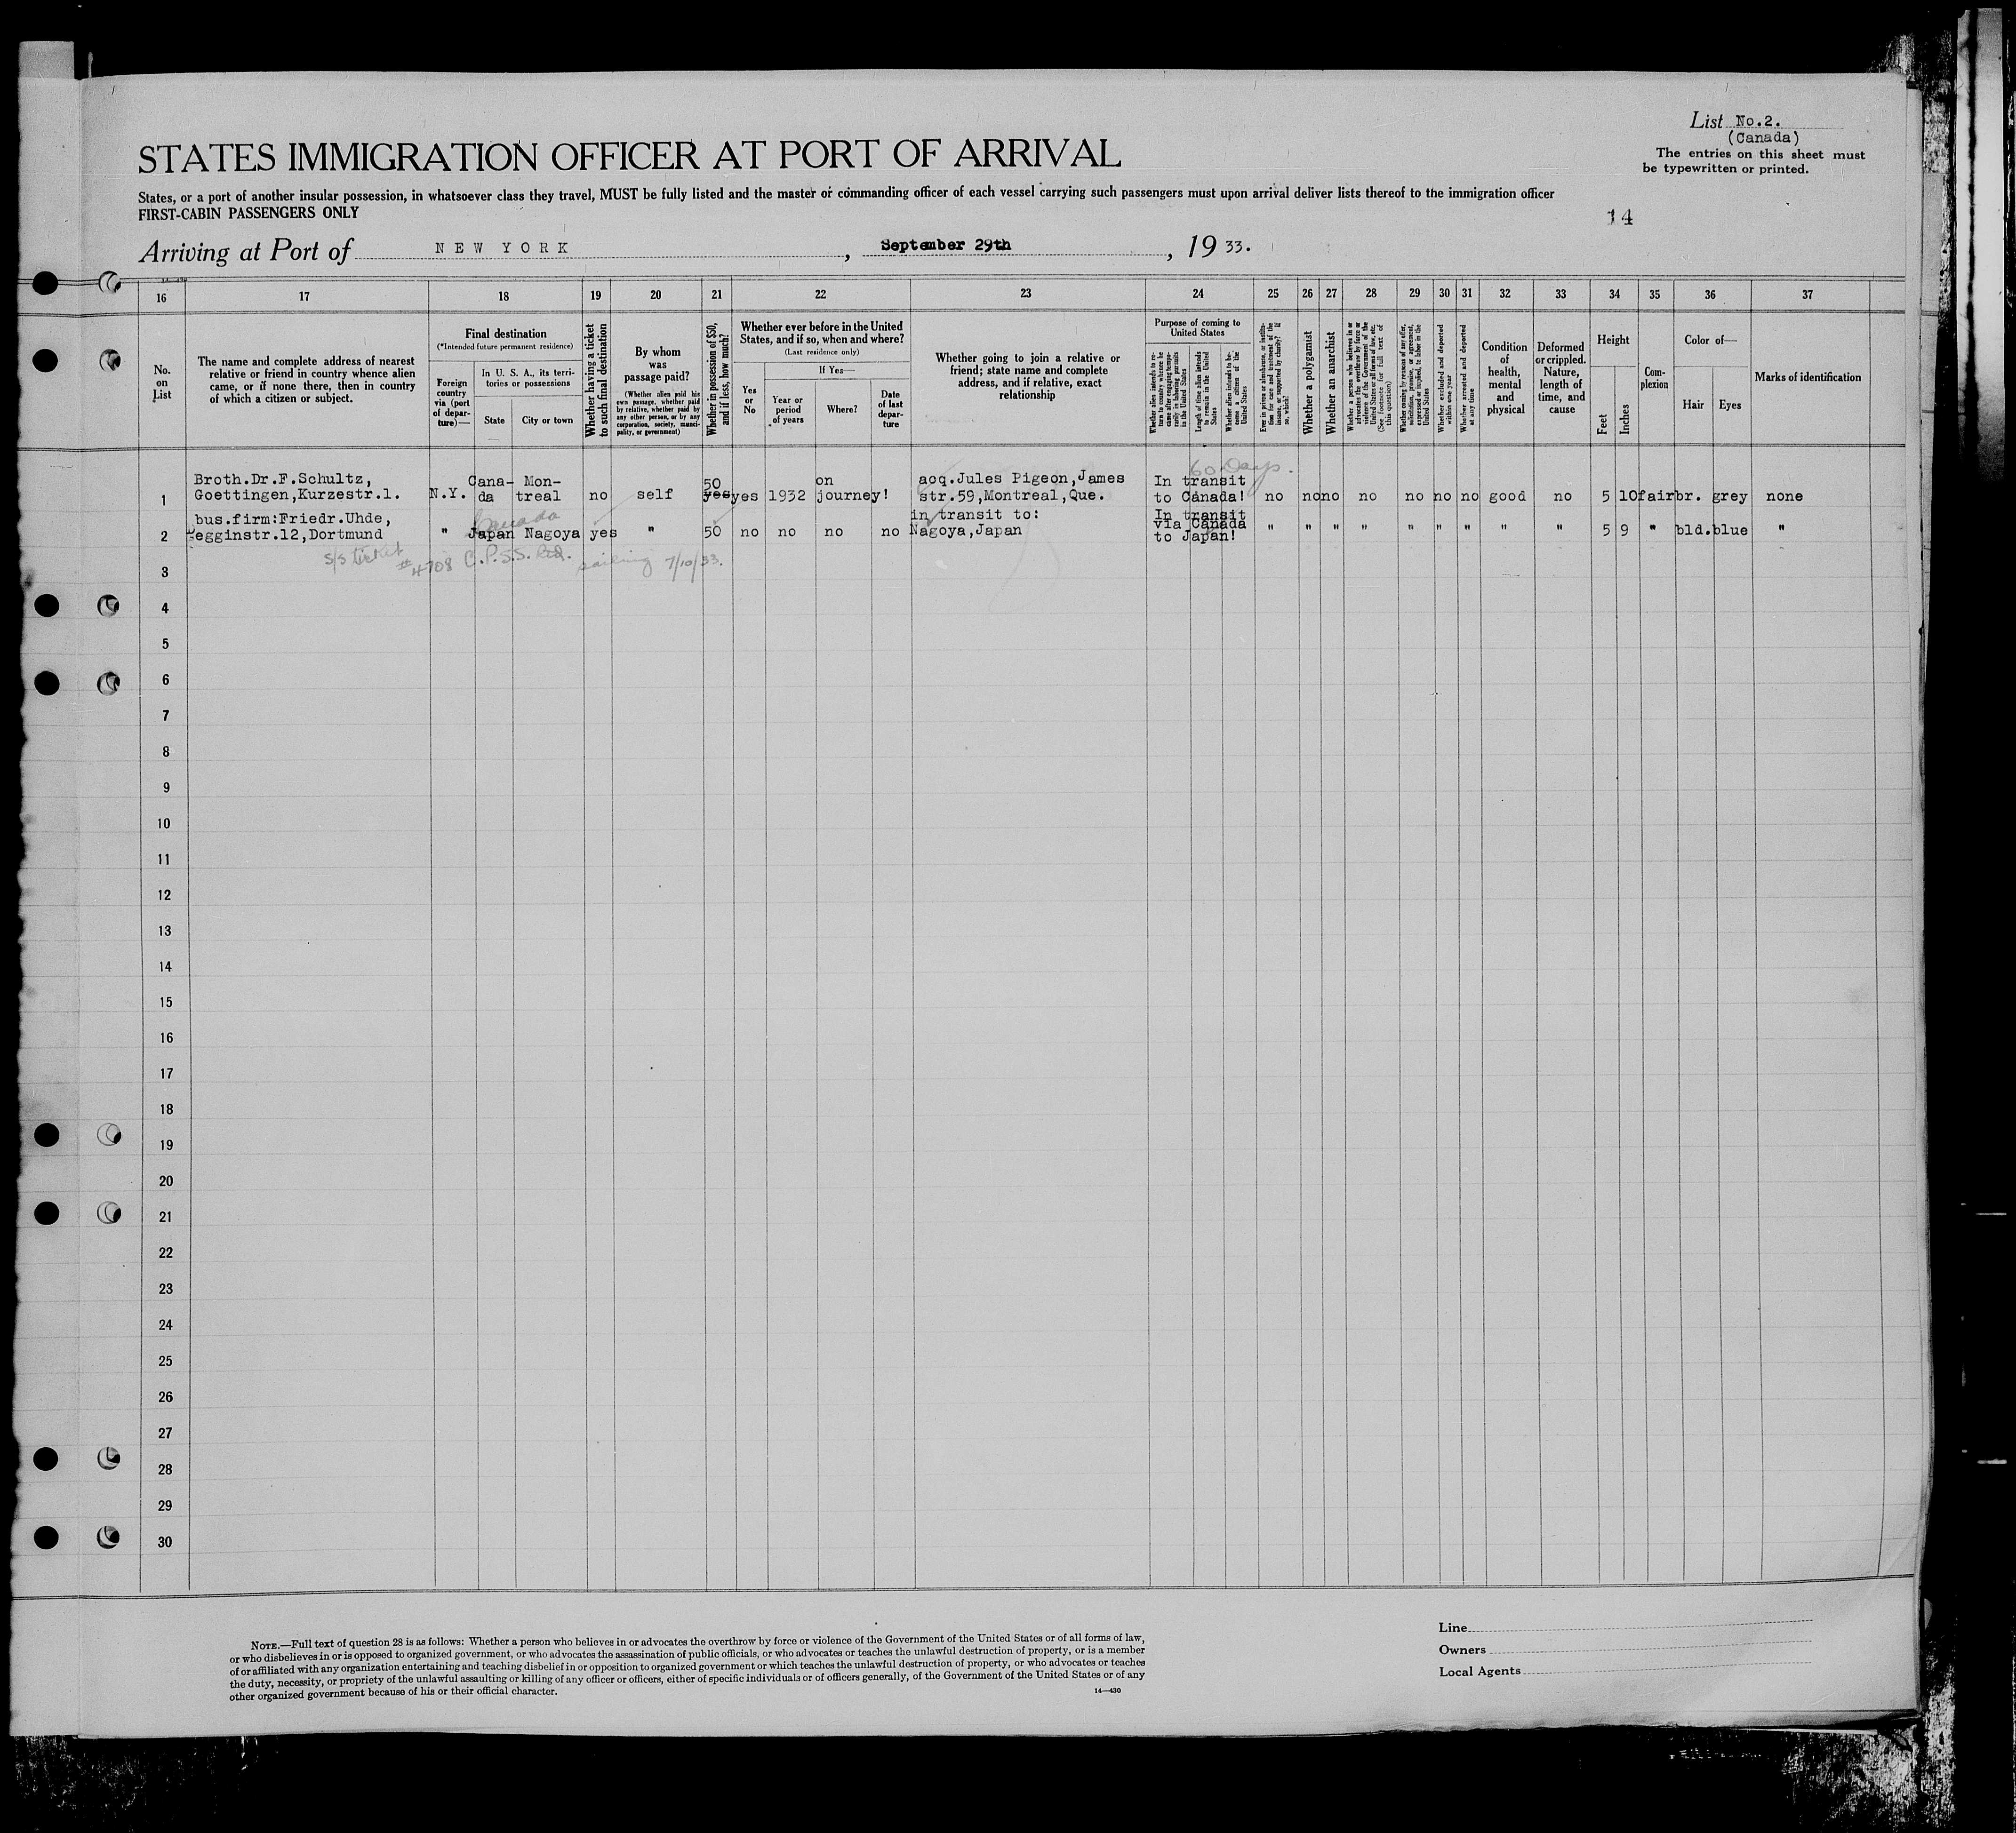 List No.2.
(Canada)
The entries on this sheet must
be typewritten or printed.
STATES IMMIGRATION OFFICER AT PORT OF ARRIVAL
States, or a port of another insular possession, in whatsoever class they travel, MUST be fully listed and the master or commanding officer of each vessel carrying such passengers must upon arrival deliver lists thereof to the immigration officer
FIRST-CABIN PASSENGERS ONLY
14
Arriving at Port of NEW YORK, September 29th, 19 33.
16 17 18 19 20 21 22 23 24 25 26 27 28 29 30 31 32 33 34 35 36 37
No. on List
The name and complete address of nearest
relative or friend in country whence alien
came, or if none there, then in country
of which a citizen or subject.
Final destination
(*Intended future permanent residence)
Foreign country via (port of departure)—
In U. S. A., its territories or possessions
State
City or town
Whether having a ticket to such final destination
By whom was passage paid?
(Whether alien paid his own passage, whether paid by relative, whether paid by any other person, or by any corporation, society, municipality, or government)
Whether in possession of $50, and if less, how much?
Whether ever before in the United States, and if so, when and where?
(Last residence only)
Yes or No
If Yes—
Year or period of years
Where?
Date of last departure
Whether going to join a relative or
friend; state name and complete
address, and if relative, exact
relationship
Purpose of coming to United States
Whether alien intends to return to country whence he came after engaging temporarily in laboring pursuits in the United States
Length of time alien intends to remain in the United States
Whether alien intends to become a citizen of the United States
Ever in prison or almshouse, or institution for care and treatment of the insane, or supported by charity? If so, which?
Whether a polygamist
Whether an anarchist
Whether a person who believes in or advocates the overthrow by force or violence of the Government of the United States or all forms of law, etc. (See footnote for full text of this question)
Whether coming by reasons of any offer, solicitation, promise, or agreement, expressed or implied, to labor in the United States
Whether excluded and deported within one year
Whether arrested and deported at any time
Condition of health, mental and physical
Deformed or crippled. Nature, length of time, and cause
Height
Feet
Inches
Complexion
Color of—
Hair
Eyes
Marks of identification
60 Days.
1 Broth.Dr.F.Schultz, Goettingen,Kurzestr.1. N.Y. Cana-da Mon-treal no self 50 yes yes 1932 on journey! acq.Jules Pigeon,James str.59,Montreal,Que. In transit to Canada! no no no no no no no good no 5 10 fair br. grey none
Canada
2 bus.firm:Friedr.Uhde, egginstr.12,Dortmund " Japan Nagoya yes " 50 no no no no in transit to: Nagoya,Japan In transit via Canada to Japan! " " " " " " " " " 5 9 " bld. blue "
s/s ticket #4708 C.P.S.S. Ltd. sailing 7/10/33.
3
4
5
6
7
8
9
10
11
12
13
14
15
16
17
18
19
20
21
22
23
24
25
26
27
28
29
30
NOTE.—Full text of question 28 is as follows: Whether a person who believes in or advocates the overthrow by force or violence of the Government of the United States or of all forms of law,
or who disbelieves in or is opposed to organized government, or who advocates the assassination of public officials, or who advocates or teaches the unlawful destruction of property, or is a member
of or affiliated with any organization entertaining and teaching disbelief in or opposition to organized government or which teaches the unlawful destruction of property, or who advocates or teaches
the duty, necessity, or propriety of the unlawful assaulting or killing of any officer or officers, either of specific individuals or of officers generally, of the Government of the United States or of any
other organized government because of his or their official character.
14—430
Line
Owners
Local Agents